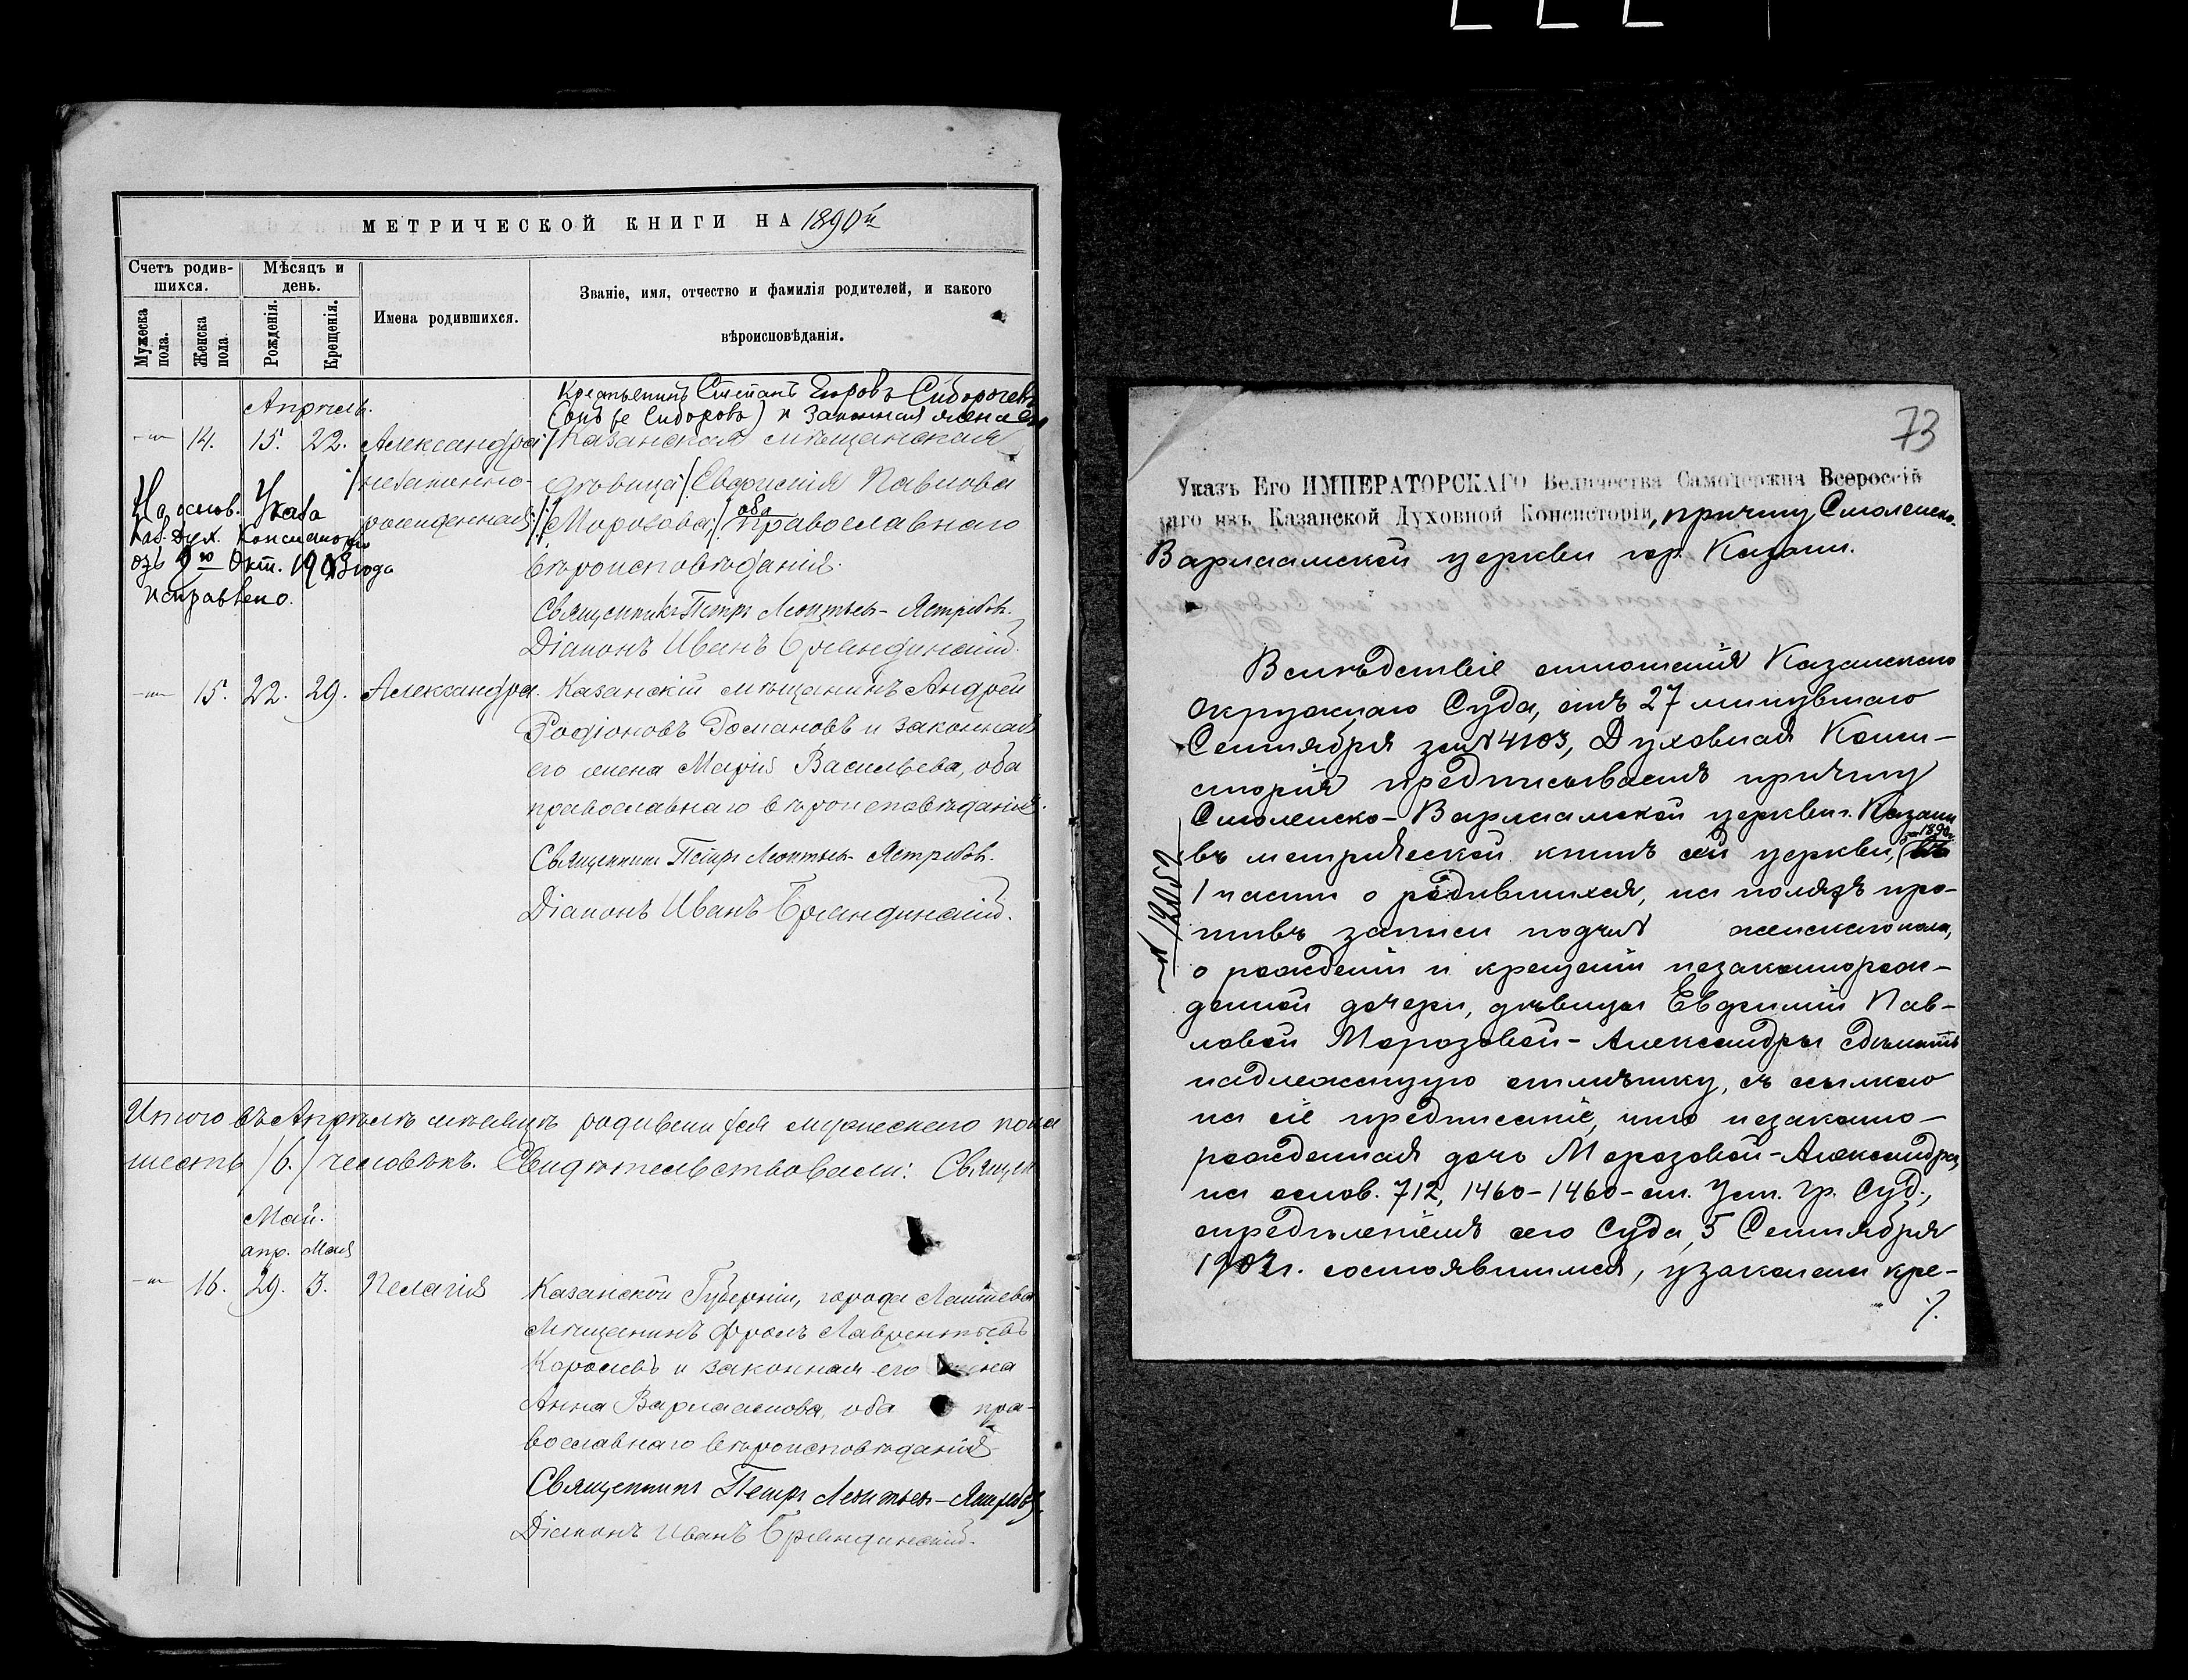 МЕТРИЧЕСКОЙ КНИГИ НА 1890й
Счетъ родив-
шихся.
Мѣсяцъ и
день.
Мужеска
пола.
Женска
пола.
Рожденія.
Крещенія.
Имена родившихся.
Званіе, имя, отчество и фамилія родителей, и какого
вѣроисповѣданія.
Крестьянинъ Степанъ Егоровъ Сидорочевъ
(онъ же Сидоровъ) и законная жена его
Апрѣль.
14. 15. 22. Александра /незаконно-рожденная/
/Казанская мѣщанская
дѣвица/ Евдокия Павлова
/Морозова/ оба православнаго
вѣроисповѣданія.
На основ. Указа
Каз. Дух. Консисторіи
отъ 9го Окт. 1903 года
исправлено.
Священникъ Петръ Леонтьев-Ястребов.
Діаконъ Иванъ Бряндинскій.
15. 22. 29. Александра. Казанскій мѣщанинъ Андрей
Родіоновъ Романовъ и законная
его жена Марія Васильева, оба
православнаго вѣроисповѣданія.
Священникъ Петръ Леонтьев-Ястребов.
Діаконъ Иванъ Бряндинскій.
Итого въ Апрѣлѣ мѣсяцѣ родившихся мужескаго пола
шесть /6./ человѣкъ. Свидѣтельствовали: Священ
Май.
апр. Мая
16. 29. 3. Пелагія Казанской Губерніи, города Лаишева
мѣщанинъ Фролъ Лаврентьевъ
Королевъ и законная его жена
Анна Варлаамова, оба пра-
вославнаго вѣроисповѣданія
Священникъ Петръ Леонтьев-Ястребов.
Діаконъ Иванъ Бряндинскій.
73
Указъ Его ИМПЕРАТОРСКАГО Величества Самодержца Всероссій
скаго изъ Казанской Духовной Консисторіи, причту Смоленско-
Варлаамской церкви гор. Казани.
Вслѣдствіе отношенія Казанскаго
Окружнаго Суда, отъ 27 минувшаго
Сентября за № 4103, Духовная Конси-
сторія предписываетъ причту
Смоленско-Варлаамской церкви г. Казани
въ метрической книгѣ сей церкви, за 1890 г.
1 части о родившихся, на поляхъ про-
тивъ записи подъ № женскаго пола,
о рожденіи и крещеніи незаконнорож-
денной дочери, дѣвицы Евдокіи Пав-
ловой Морозовой-Александры сдѣлать
надлежащую отмѣтку, съ ссылкою
на сіе предписаніе, что незаконно-
рожденная дочь Морозовой-Александра,
на основ. 712, 1460-1460- ст. Уст. Гр. Суд.,
опредѣленіемъ сего Суда, 5 Сентября
1903 г. состоявшимся, узаконена кре-
№ 12052